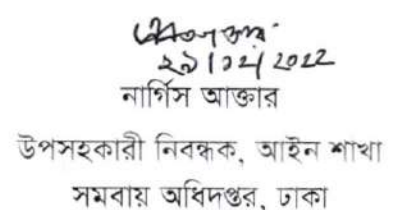 ২৯/১২/2022
নার্গিস আক্তার
উপসহকারী নিবন্ধক, আইন শাখা
সমবায় অধিদপ্তর, ঢাকা